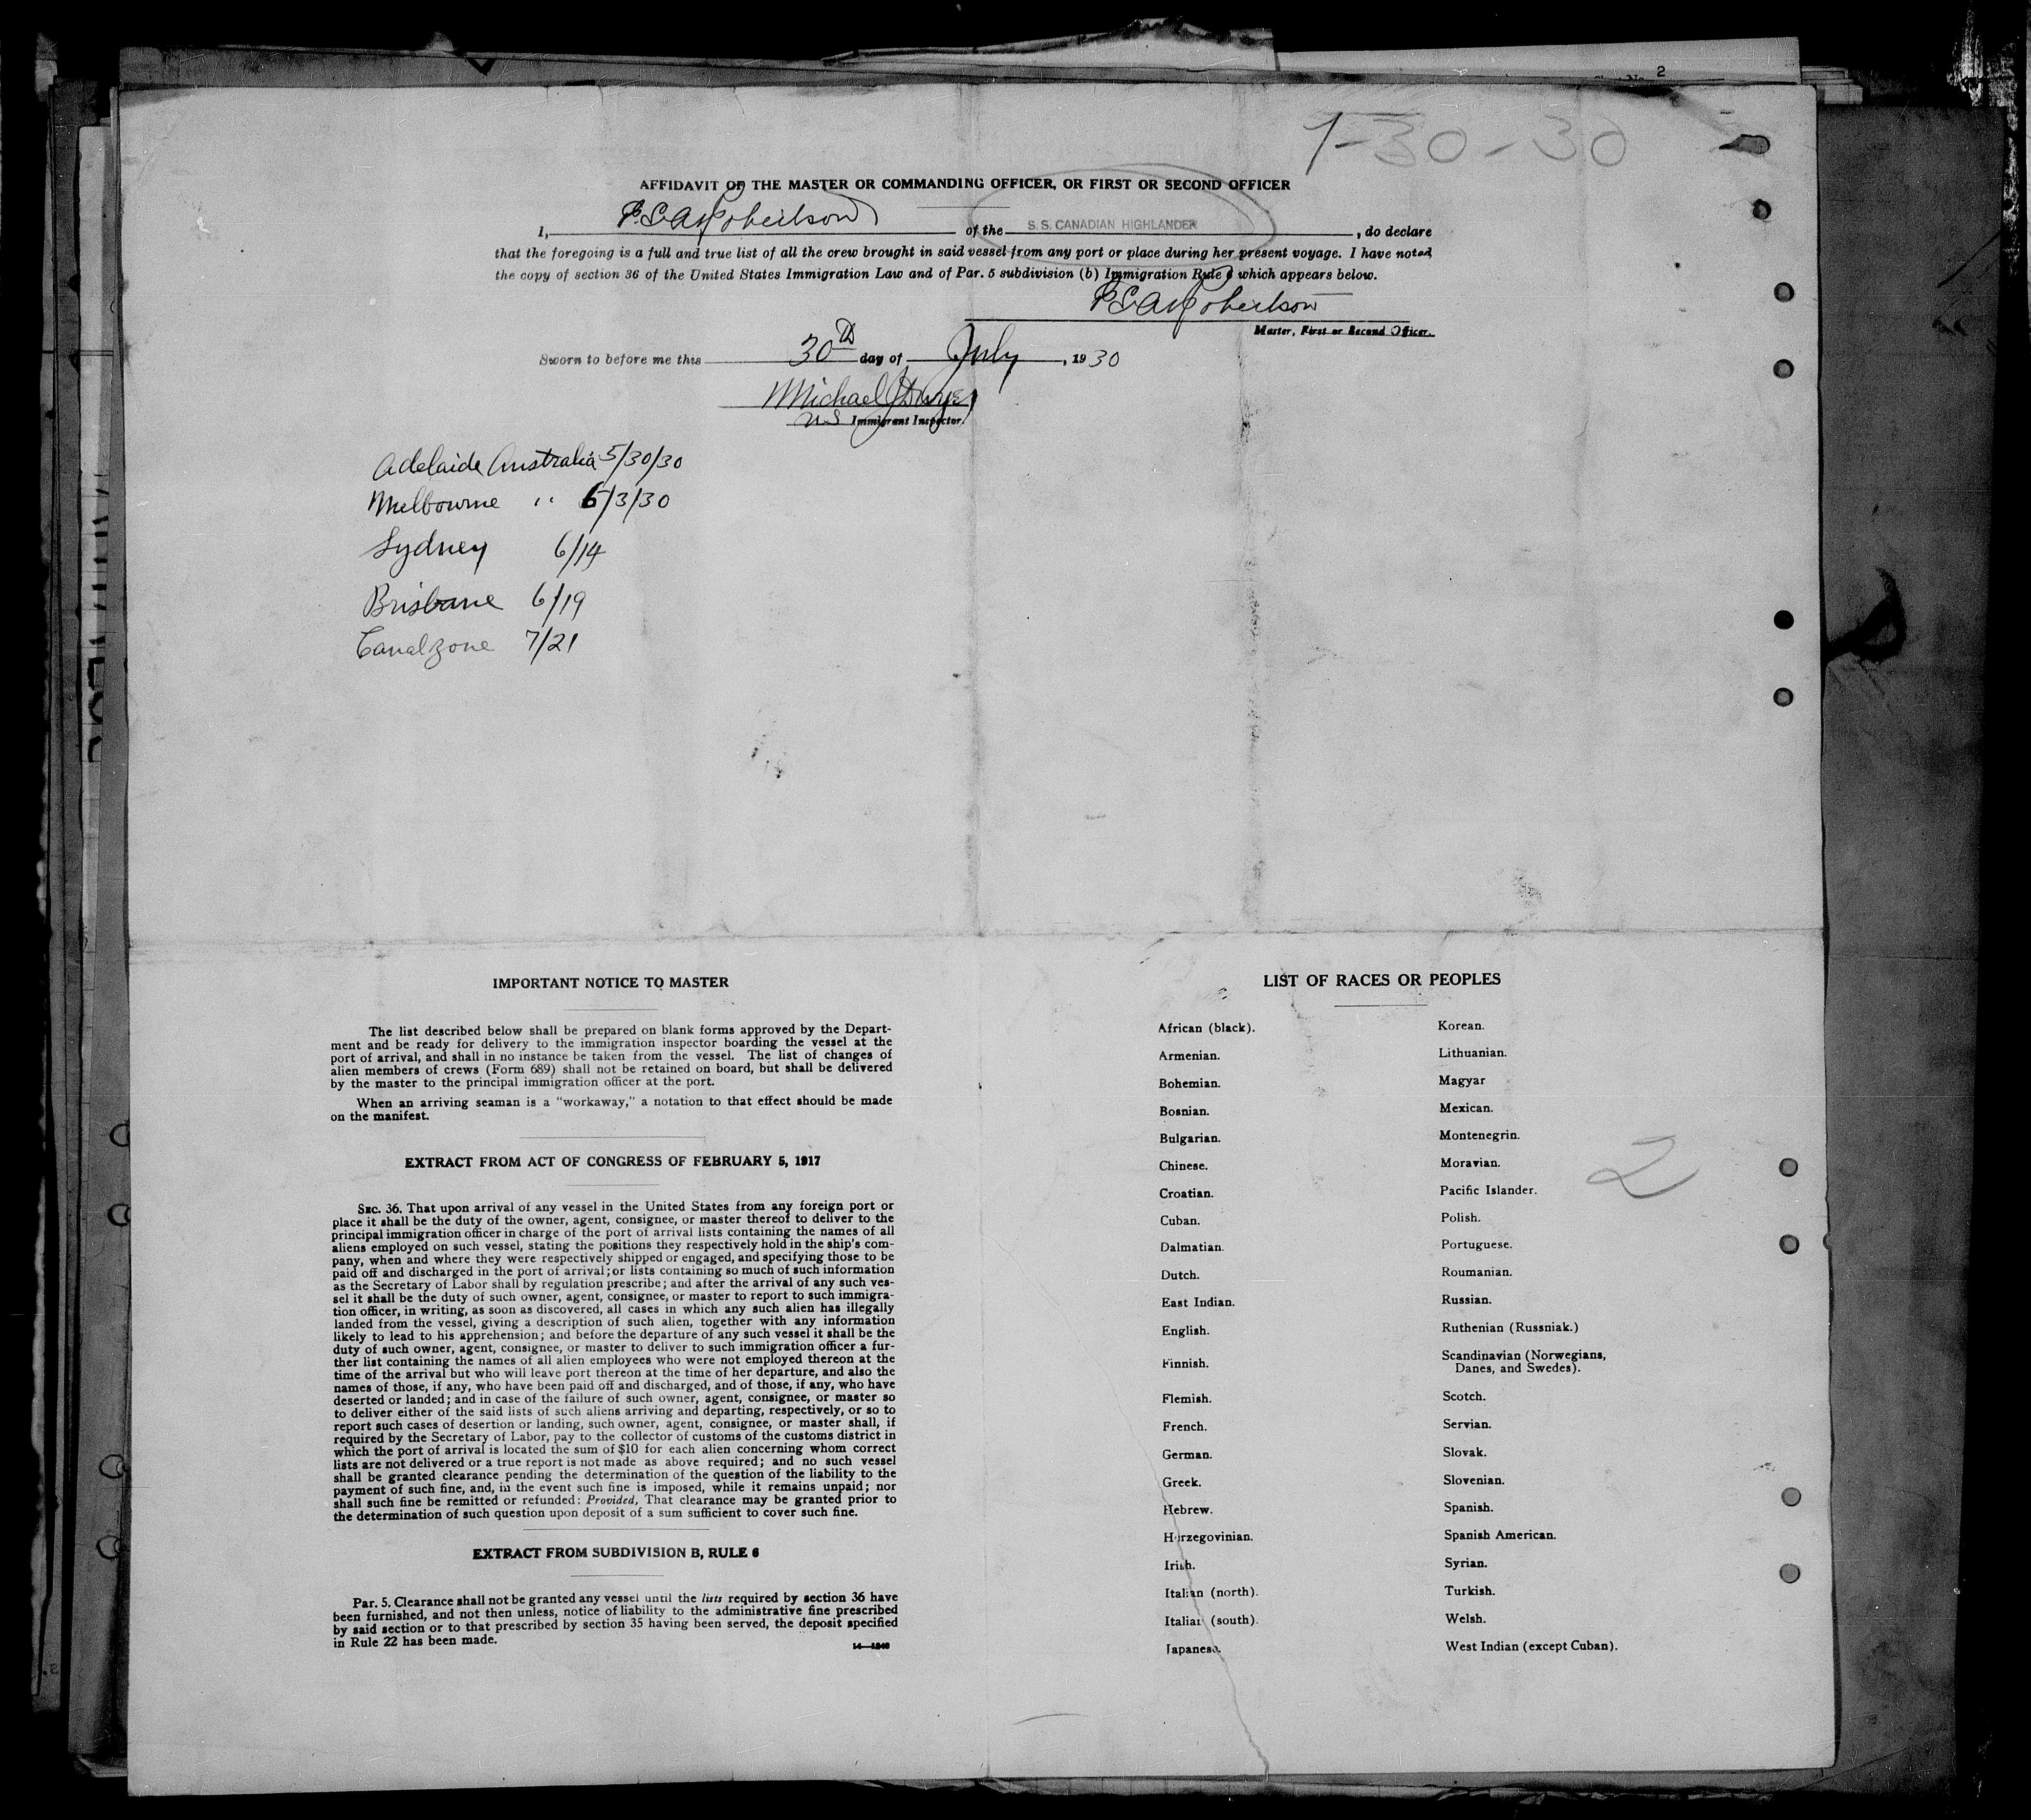 2
7-30-30
AFFIDAVIT OF THE MASTER OR COMMANDING OFFICER, OR FIRST OR SECOND OFFICER
I, Robertson of the S.S. CANADIAN HIGHLANDER, do declare
that the foregoing is a full and true list of all the crew brought in said vessel from any port or place during her present voyage. I have noted
the copy of section 36 of the United States Immigration Law and of Par. 5 subdivision (b) Immigration Rule 6 which appears below.
Robertson
Master, First or Second Officer.
Sworn to before me this 30th day of July, 1930
Michael
US Immigrant Inspector.
Adelaide Australia 5/30/30
Melbourne " 6/3/30
Sydney 6/14
Brisbane 6/19
Canal Zone 7/21
IMPORTANT NOTICE TO MASTER
The list described below shall be prepared on blank forms approved by the Depart-
ment and be ready for delivery to the immigration inspector boarding the vessel at the
port of arrival, and shall in no instance be taken from the vessel. The list of changes of
alien members of crews (Form 689) shall not be retained on board, but shall be delivered
by the master to the principal immigration officer at the port.
When an arriving seaman is a "workaway," a notation to that effect should be made
on the manifest.
EXTRACT FROM ACT OF CONGRESS OF FEBRUARY 5, 1917
SEC. 36. That upon arrival of any vessel in the United States from any foreign port or
place it shall be the duty of the owner, agent, consignee, or master thereof to deliver to the
principal immigration officer in charge of the port of arrival lists containing the names of all
aliens employed on such vessel, stating the positions they respectively hold in the ship's com-
pany, when and where they were respectively shipped or engaged, and specifying those to be
paid off and discharged in the port of arrival; or lists containing so much of such information
as the Secretary of Labor shall by regulation prescribe; and after the arrival of any such ves-
sel it shall be the duty of such owner, agent, consignee, or master to report to such immigra-
tion officer, in writing, as soon as discovered, all cases in which any such alien has illegally
landed from the vessel, giving a description of such alien, together with any information
likely to lead to his apprehension; and before the departure of any such vessel it shall be the
duty of such owner, agent, consignee, or master to deliver to such immigration officer a fur-
ther list containing the names of all alien employees who were not employed thereon at the
time of the arrival but who will leave port thereon at the time of her departure, and also the
names of those, if any, who have been paid off and discharged, and of those, if any, who have
deserted or landed; and in case of the failure of such owner, agent, consignee, or master so
to deliver either of the said lists of such aliens arriving and departing, respectively, or so to
report such cases of desertion or landing, such owner, agent, consignee, or master shall, if
required by the Secretary of Labor, pay to the collector of customs of the customs district in
which the port of arrival is located the sum of $10 for each alien concerning whom correct
lists are not delivered or a true report is not made as above required; and no such vessel
shall be granted clearance pending the determination of the question of the liability to the
payment of such fine, and, in the event such fine is imposed, while it remains unpaid; nor
shall such fine be remitted or refunded: Provided, That clearance may be granted prior to
the determination of such question upon deposit of a sum sufficient to cover such fine.
EXTRACT FROM SUBDIVISION B, RULE 6
Par. 5. Clearance shall not be granted any vessel until the lists required by section 36 have
been furnished, and not then unless, notice of liability to the administrative fine prescribed
by said section or to that prescribed by section 35 having been served, the deposit specified
in Rule 22 has been made.
LIST OF RACES OR PEOPLES
African (black).
Armenian.
Bohemian.
Bosnian.
Bulgarian.
Chinese.
Croatian.
Cuban.
Dalmatian.
Dutch.
East Indian.
English.
Finnish.
Flemish.
French.
German.
Greek.
Hebrew.
Herzegovinian.
Irish.
Italian (north).
Italian (south).
Japanese.
Korean.
Lithuanian.
Magyar
Mexican.
Montenegrin.
Moravian.
Pacific Islander.
Polish.
Portuguese.
Roumanian.
Russian.
Ruthenian (Russniak.)
Scandinavian (Norwegians,
Danes, and Swedes).
Scotch.
Servian.
Slovak.
Slovenian.
Spanish.
Spanish American.
Syrian.
Turkish.
Welsh.
West Indian (except Cuban).
2